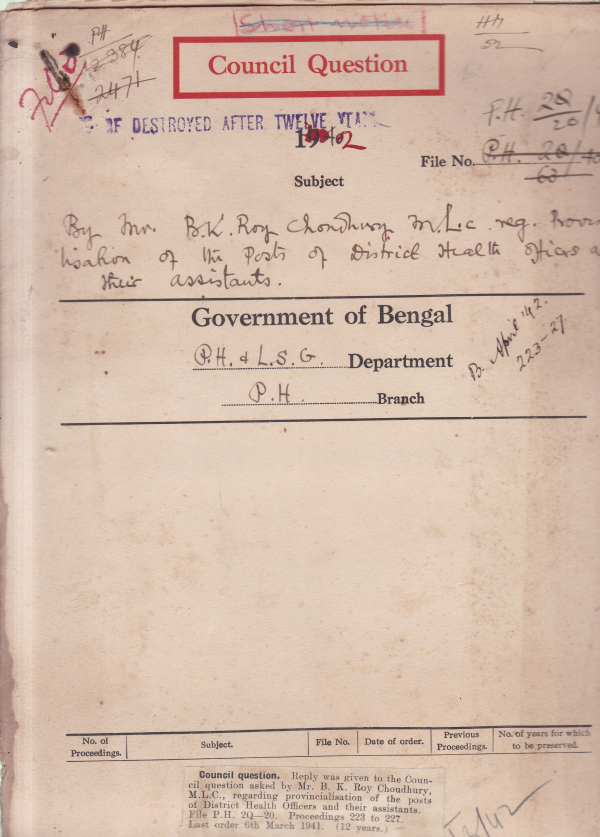 Short notice
Council Question
PH
2384
2471
File D
HH
52
DESTROYED AFTER TWELVE YEA
1942
F.H. 2Q/20
File No. P.H. 2Q/
63
Subject
By Mr. B.K. Roy Chondhury M.L.C. reg. Provin
lisation of the Posts of District Health Officers a
their assistants.
Government of Bengal
P.H. & L.S.G. Department
P.H. Branch
B. April '42.
223-27
No. of Proceedings. Subject. File No. Date of order. Previous Proceedings. No. of years for which to be preserved.
Council question. Reply was given to the Coun-
cil question asked by Mr. B. K. Roy Choudhury,
M.L.C., regarding provincialisation of the posts
of District Health Officers and their assistants.
File P.H. 2Q—20. Proceedings 223 to 227.
Last order 6th March 1941. (12 years.)